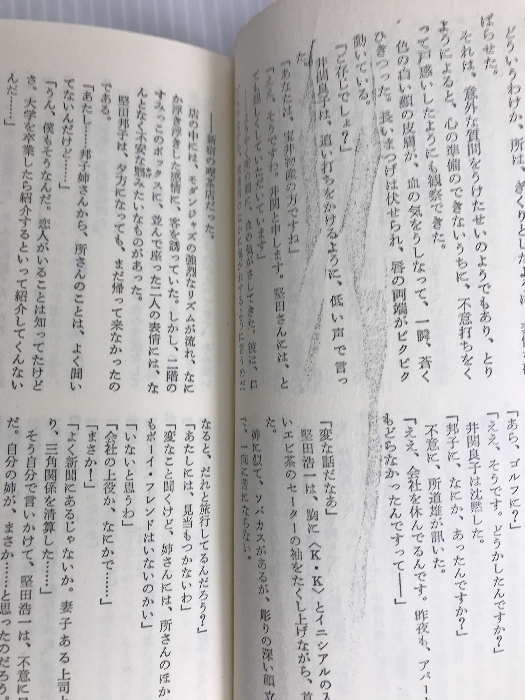 どういうわけか、所は、ぎくりと
ばらせた。
それは、意外な質問をうけたせいのようでもあり、とり
ようによると、心の準備のできないうちに、不意打ちをく
って戸惑いしたようにも観察できた。
色の白い顔の皮膚が、血の気をうしなって、一瞬、蒼く
ひきつった。長いまつげは伏せられ、唇の両端がピクピク
動いている。
「ご存じでしょ？」
井関良子は、追い打ちをかけるように、低い声で言っ
た。
「あなたは、宝井物産の方ですね」
「ええ、そうですわ。井関と申します。堅田さんには、と
ても親しくしていただいています」
に、血の気がさしてきた。彼は、口
「あら、ゴルフに？」
「ええ、そうです。どうかしたんですか？」
井関良子は沈黙した。
「邦子に、なにか、あったんですか？」
不意に、所道雄が訊いた。
「ええ、会社を休んでるんです。昨夜も、アパ
もどらなかったんですって――」
「変な話だなあ」
堅田浩一は、胸に〈K・K〉とイニシアルの入
いエビ茶のセーターの袖をたくし上げながら、首
姉に似て、ソバカスがあるが、彫りの深い顔立
で、一向に苦にならない。
――新宿の喫茶店だった。
店の中には、モダンジャズの強烈なリズムが流れ、なに
か浮き浮きした感情に、客を誘っていた。しかし、二階の
すみっこのボックスに、並んで座った二人の表情には、な
んとなく不安な翳みたいなものがあった。
堅田邦子は、夕方になっても、まだ帰って来なかったの
である。
「あたし……邦子姉さんから、所さんのことは、よく聞い
てないんだけど……」
「うん、僕もそうなんだ。恋人がいることは知ってたけど
さ。大学を卒業したら紹介するといって紹介してくんない
んだ……」
なると、だれと旅行してるんだろう？」
「あたしには、見当もつかないわ」
「変なこと聞くけど、姉さんには、所さんのほか
もボーイ・フレンドはいないのかい」
「いないと思うわ」
「会社の上役か、なにかで……」
「まさか！」
「よく新聞にあるじゃないか。妻子ある上司と
り、三角関係を清算した……」
そう自分で言いかけて、堅田浩一は、不意に口
だ。自分の姉が、まさか……と思ったのだろう。